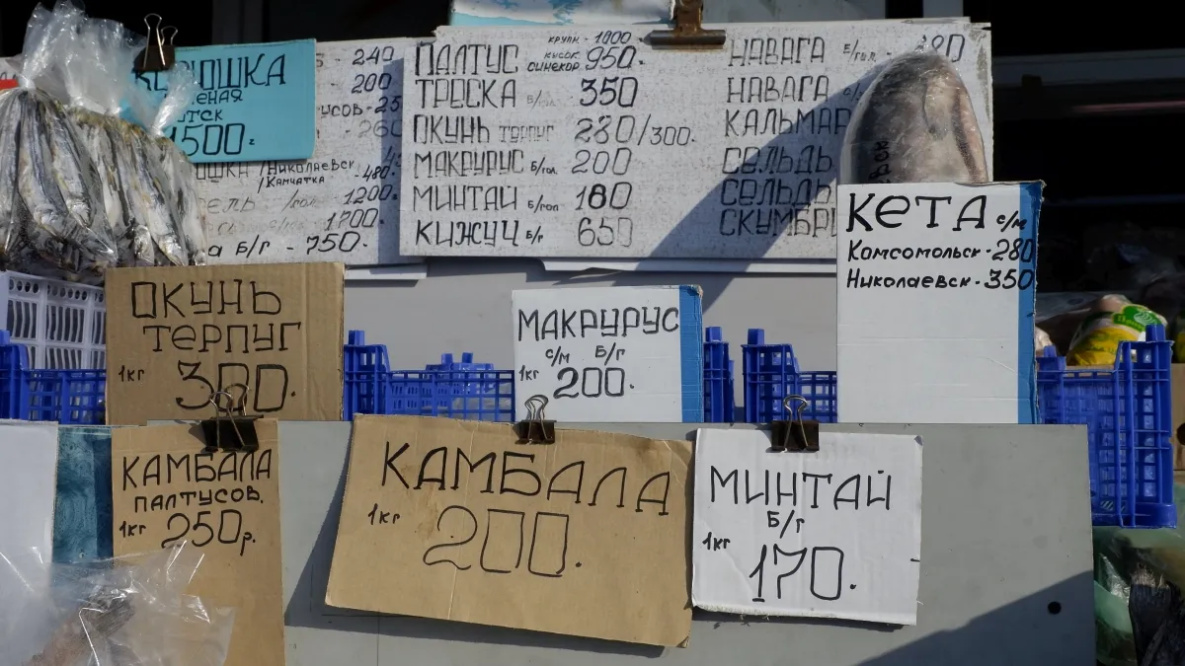 КОРЮШКА
1500г
240
200
УСОВ-25
260
/Николаевск
/КАМЧАТКА -480.
/гол 1200.
1700.
а Б/Г - 750.
ПАЛТУС КРУПН.-1000
КУСОК. 950.
СИНЕКОР.
ТРЕСКА б/гол 350
ОКУНЬ ТЕРПУГ 280/300.
МАКРУРУС Б/гол 200
МИНТАЙ Б/гол 180
КИЖУЧ Б/г 650
НАВАГА Б/гол.
НАВАГА
КАЛЬМАР
СЕЛЬДЬ
СЕЛЬДЬ
СКУМБРИ
КЕТА с/м
Комсомольск-280
Николаевск-350
ОКУНЬ
ТЕРПУГ
1кг 300.
МАКРУРУС
с/м Б/г
1кг 200.
КАМБАЛА
ПАЛТУСОВ.
1кг 250р.
КАМБАЛА
1кг 200.
МИНТАЙ
Б/г
1кг 170.